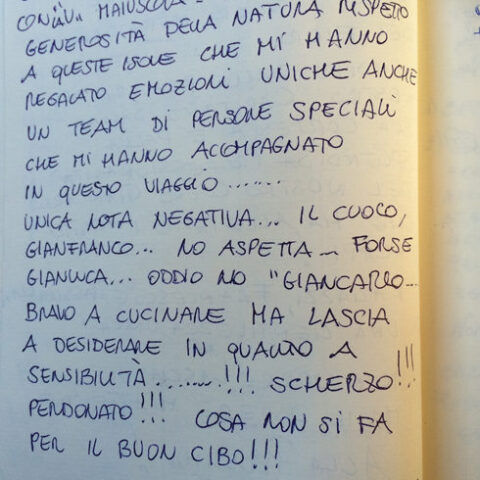 MAIUSCOLA
GENEROSITÀ DELLA NATURA RISPETTO
A QUESTE ISOLE CHE MI HANNO
REGALATO EMOZIONI UNICHE ANCHE
UN TEAM DI PERSONE SPECIALI
CHE MI HANNO ACCOMPAGNATO
IN QUESTO VIAGGIO.......
UNICA NOTA NEGATIVA... IL CUOCO,
GIANFRANCO... NO ASPETTA... FORSE
GIANLUCA... ODDIO NO "GIANCARLO...
BRAVO A CUCINARE MA LASCIA
A DESIDERARE IN QUANTO A
SENSIBILITÀ........!!! SCHERZO!!!
PERDONATO!!! COSA NON SI FA
PER IL BUON CIBO!!!